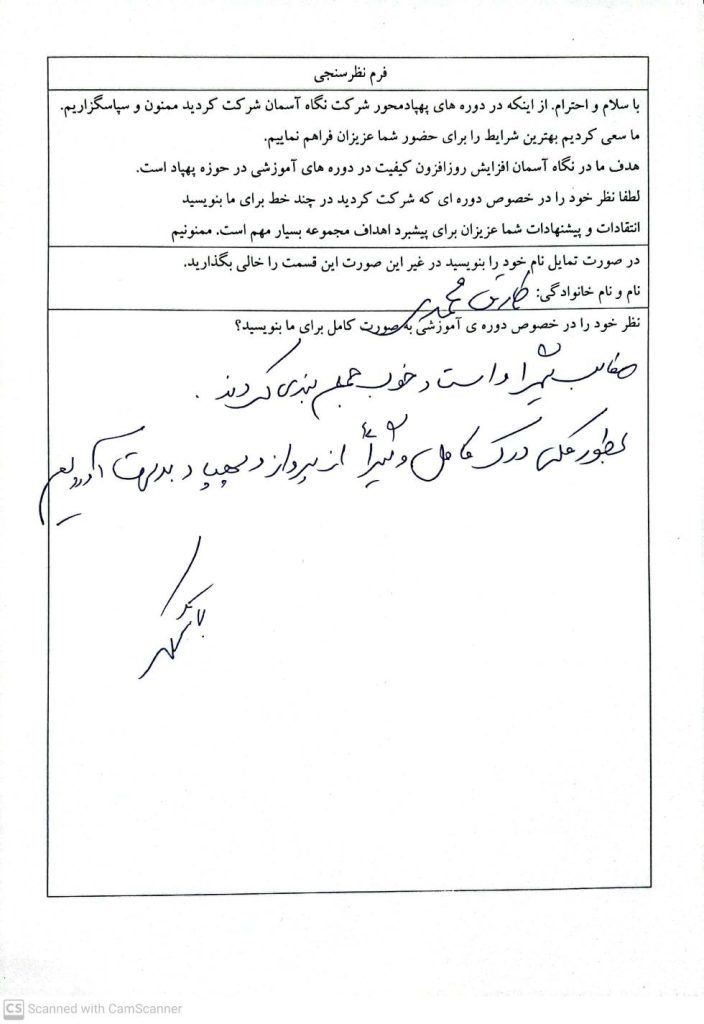 فرم نظرسنجی
با سلام و احترام. از اینکه در دوره های پهپادمحور شرکت نگاه آسمان شرکت کردید ممنون و سپاسگزاریم.
ما سعی کردیم بهترین شرایط را برای حضور شما عزیزان فراهم نماییم.
هدف ما در نگاه آسمان افزایش روزافزون کیفیت در دوره های آموزشی در حوزه پهپاد است.
لطفا نظر خود را در خصوص دوره ای که شرکت کردید در چند خط برای ما بنویسید
انتقادات و پیشنهادات شما عزیزان برای پیشبرد اهداف مجموعه بسیار مهم است. ممنونیم
در صورت تمایل نام خود را بنویسید در غیر این صورت این قسمت را خالی بگذارید.
نام و نام خانوادگی: محمدی
نظر خود را در خصوص دوره ی آموزشی به صورت کامل برای ما بنویسید؟
مطالب را و خوب جمع بندی کردند.
بطور کلی درک کامل و از پرواز و پهپاد بدست آوردیم
با تشکر
CS Scanned with CamScanner